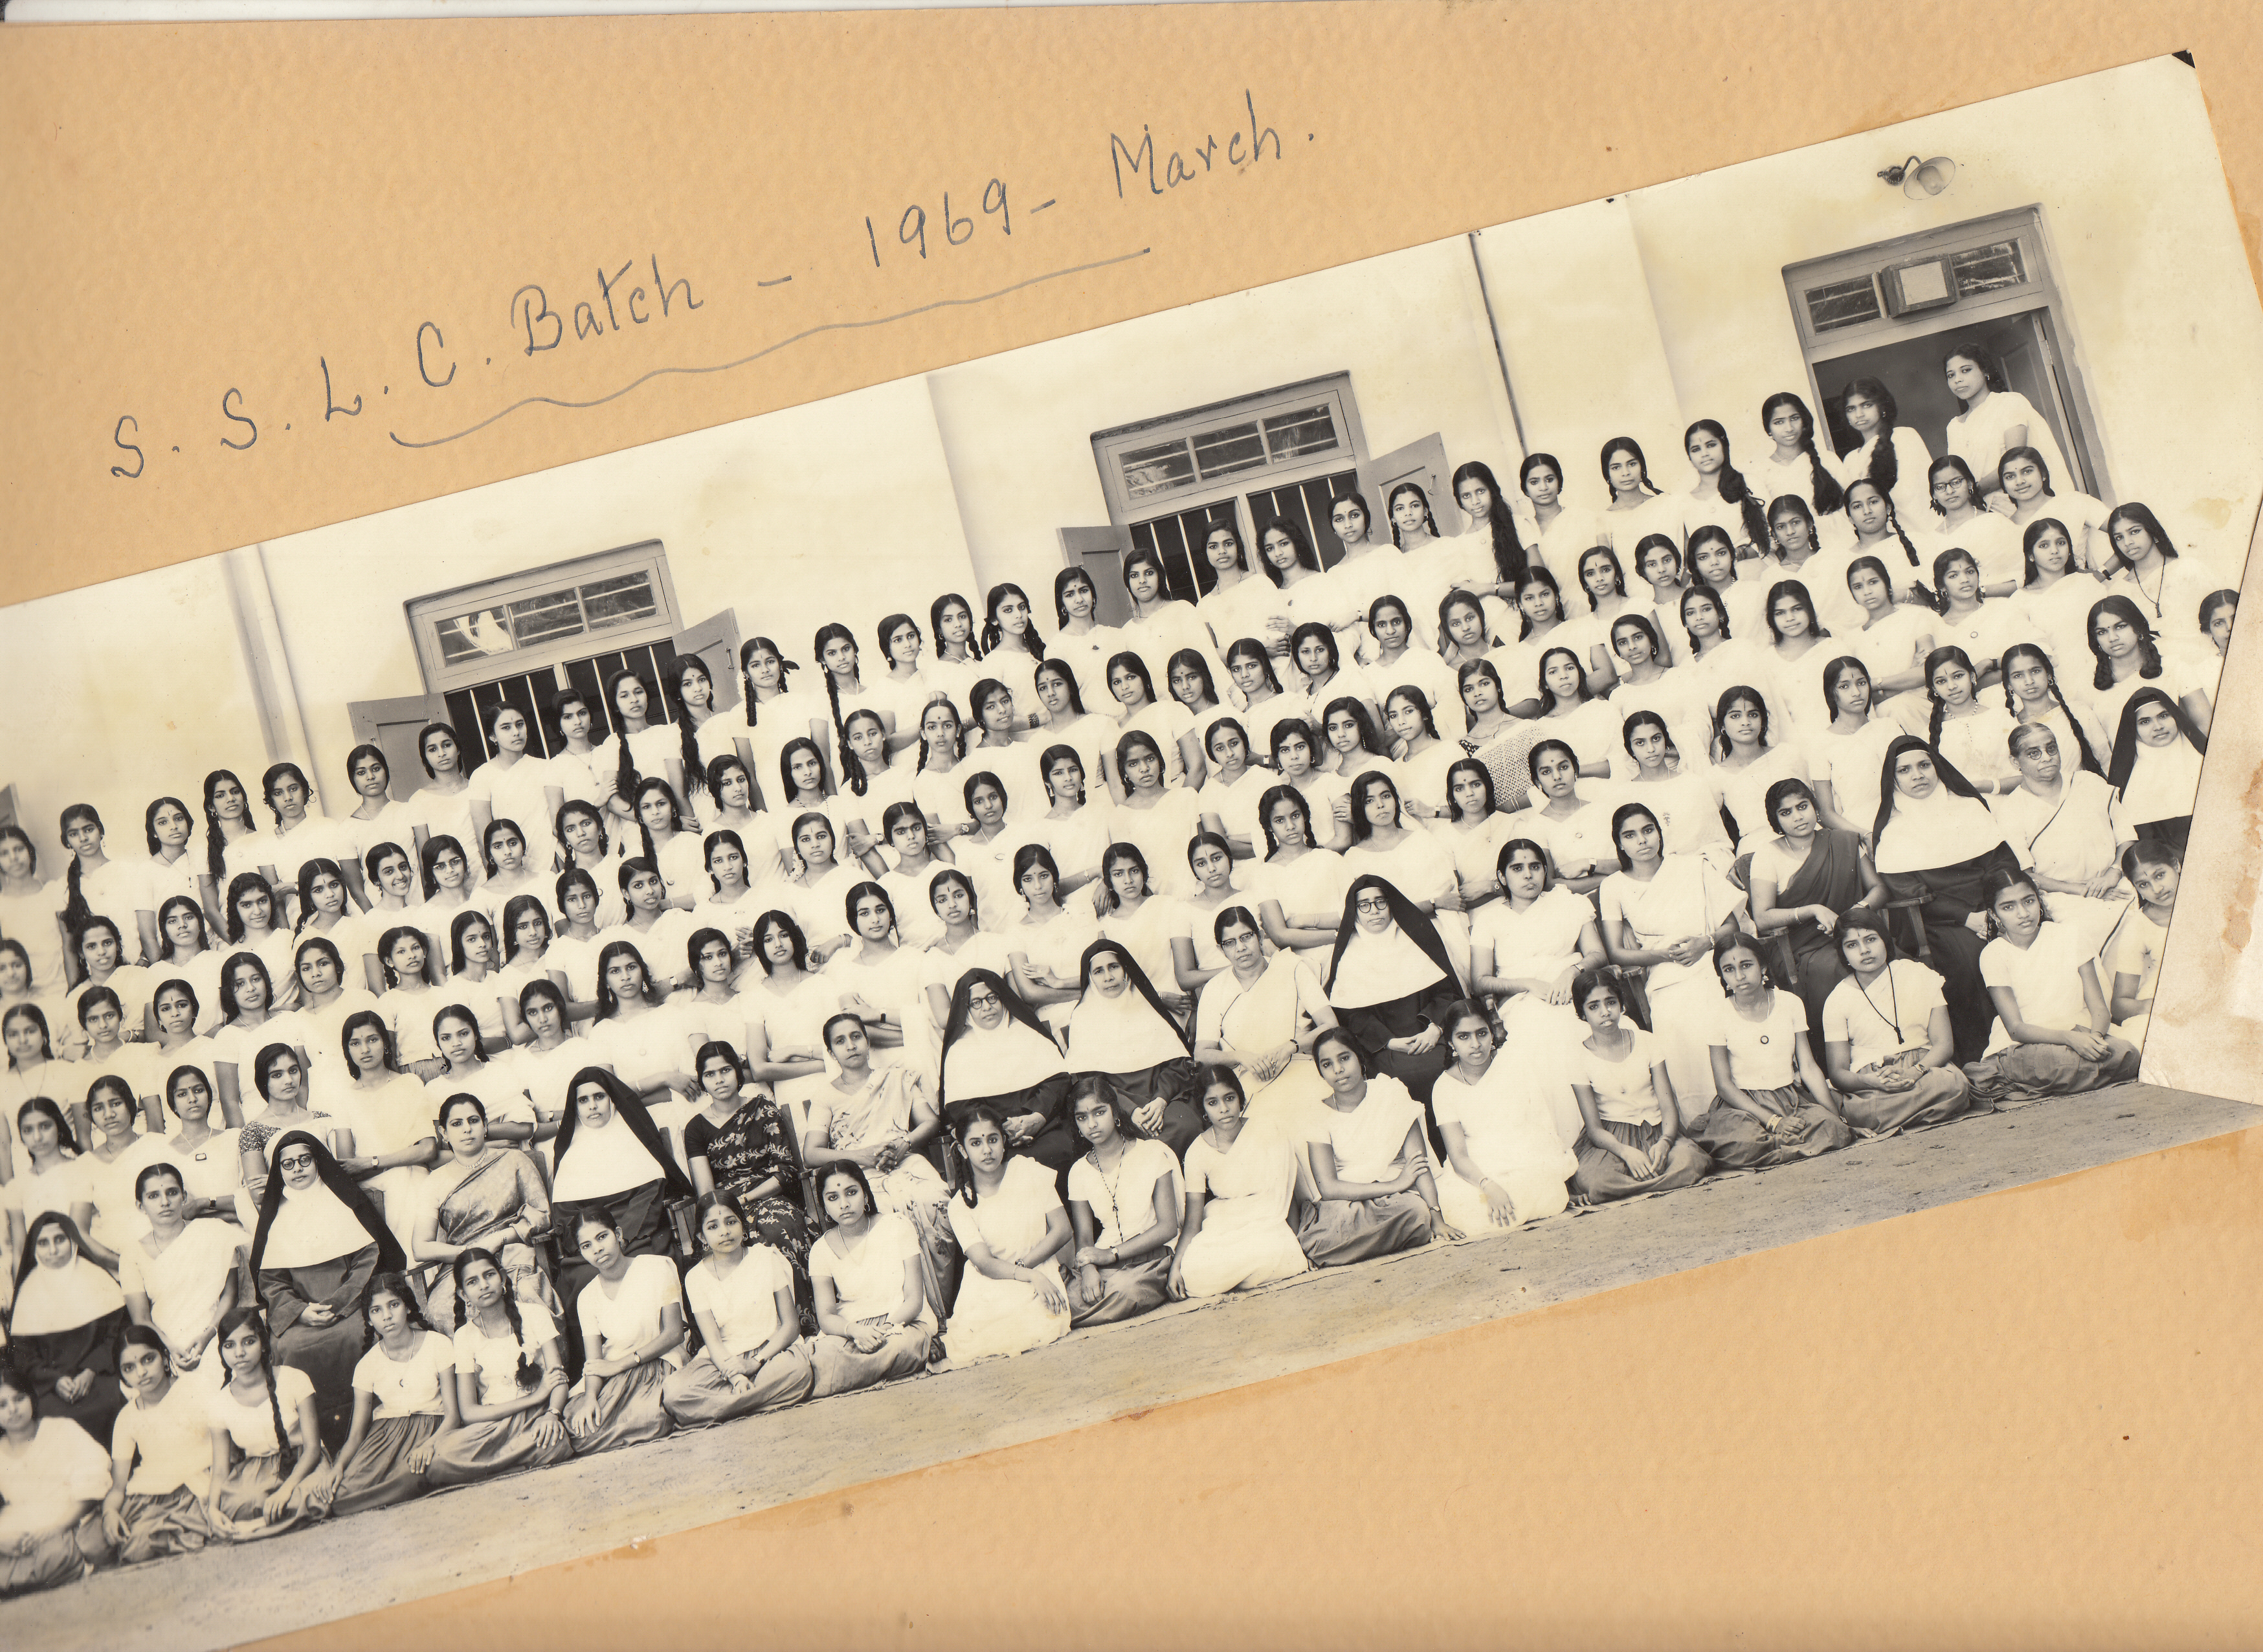 S. S. L. C. Batch - 1969 - March.